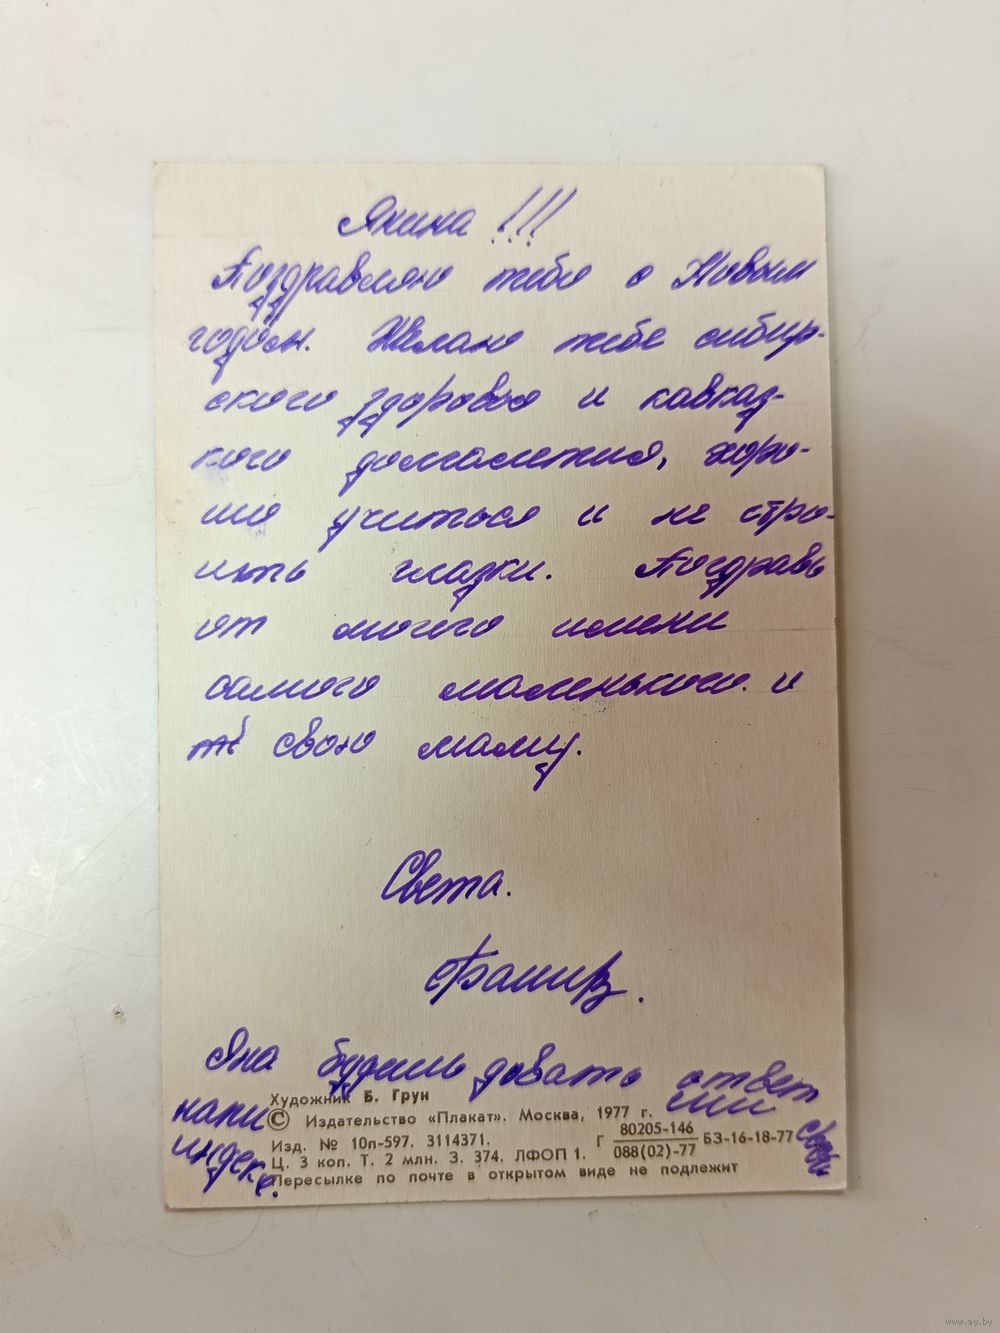 Янина !!!
Поздравляю тебя с Новым
годом. Желаю тебе сибир-
ского здоровья и кавказ-
кого долголетия, хоро-
шо учиться и не стро-
ить глазки. Поздравь
от моего имени
самого маленького. и
свою маму.
Света.
Яна будешь довать ответ
напиши свой
индекс.
Художник Б. Грун
© Издательство «Плакат». Москва, 1977 г.
Изд. № 10п-597. 3114371.
Ц. 3 коп. Т. 2 млн. З. 374. ЛФОП 1.
Г 80205-146
088(02)-77 БЗ-16-18-77
Пересылке по почте в открытом виде не подлежит
www.ay.by